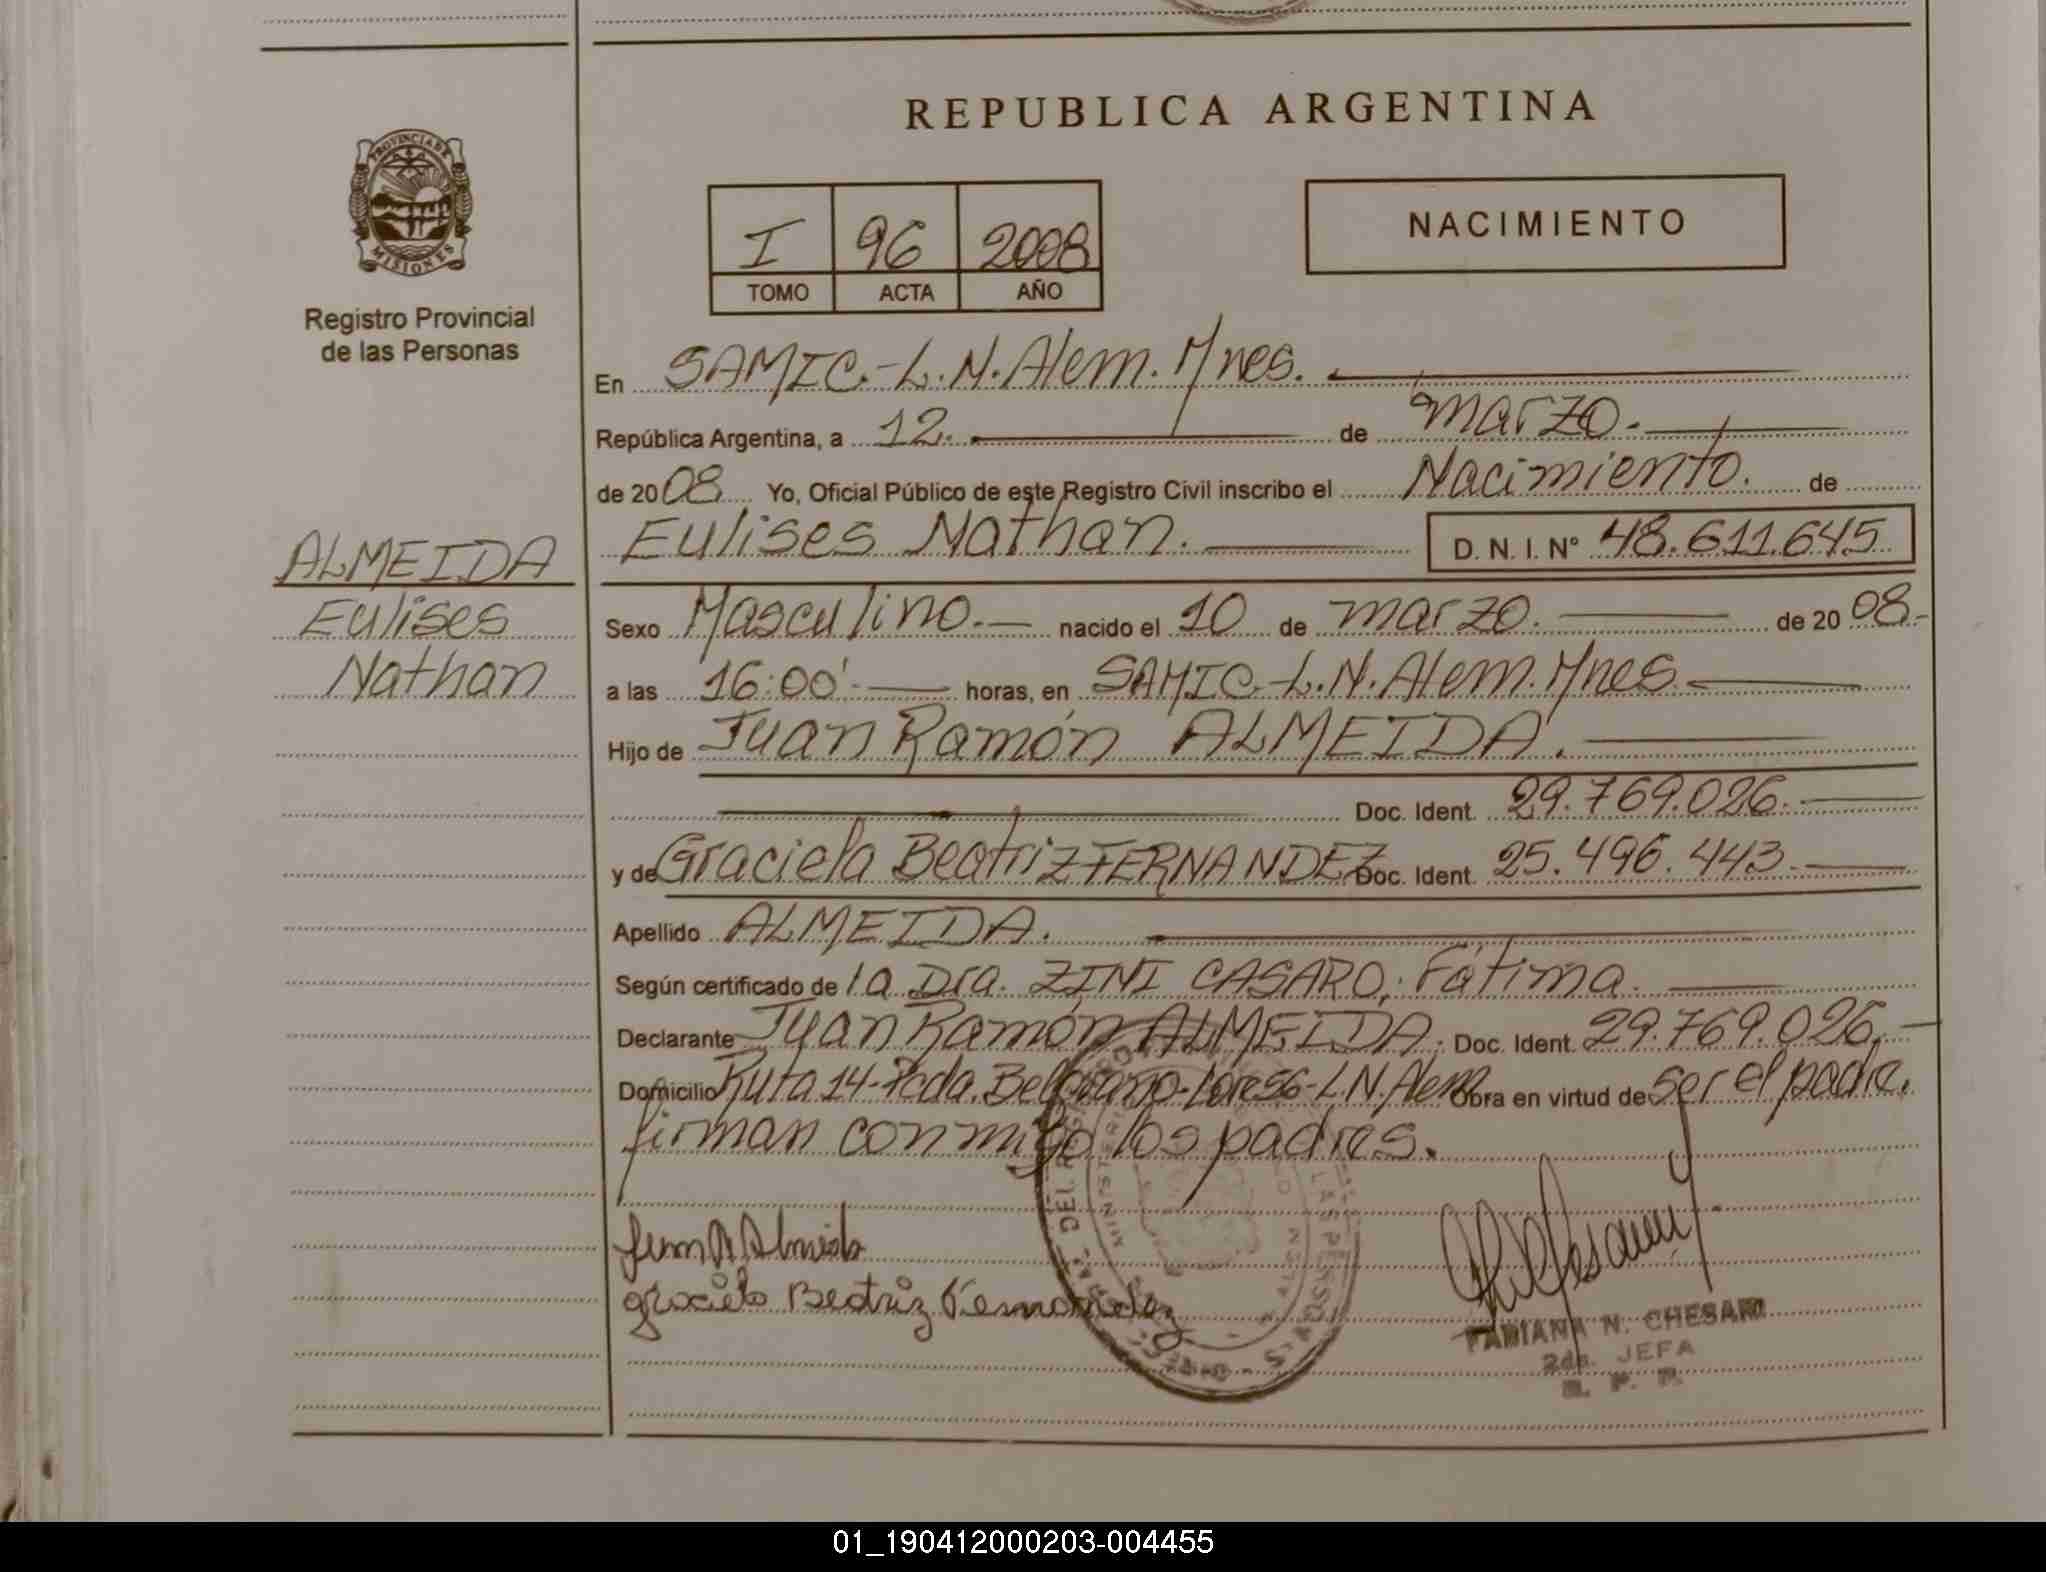 REPUBLICA ARGENTINA
PROVINCIA DE
MISIONES
Registro Provincial
de las Personas
I 96 2008
TOMO ACTA AÑO
NACIMIENTO
En SAMIC.-L.N.Alem.Mnes.
República Argentina, a 12. de marzo.
de 2008 Yo, Oficial Público de este Registro Civil inscribo el Nacimiento. de
Eulises Nathan. D. N. I. Nº 48.611.645
ALMEIDA
Eulises
Nathan
Sexo Masculino. nacido el 10 de marzo. de 2008.
a las 16:00' horas, en SAMIC.-L.N.Alem.Mnes.
Hijo de Juan Ramón ALMEIDA.
Doc. Ident. 29.769.026.
y de Graciela Beatriz FERNANDEZ Doc. Ident. 25.496.443.
Apellido ALMEIDA.
Según certificado de la Dra. ZINI CASARO, Fátima.
Declarante Juan Ramón ALMEIDA. Doc. Ident. 29.769.026.
Domicilio Ruta 14-Pcda. Belgrano-Lote 56-L.N.Alem Obra en virtud de ser el padre.
firman conmigo los padres.
Juan R Almeida
graciela Beatriz Fernandez
FABIANA N. CHESANI
2da. JEFA
R. P. P.
01_190412000203-004455